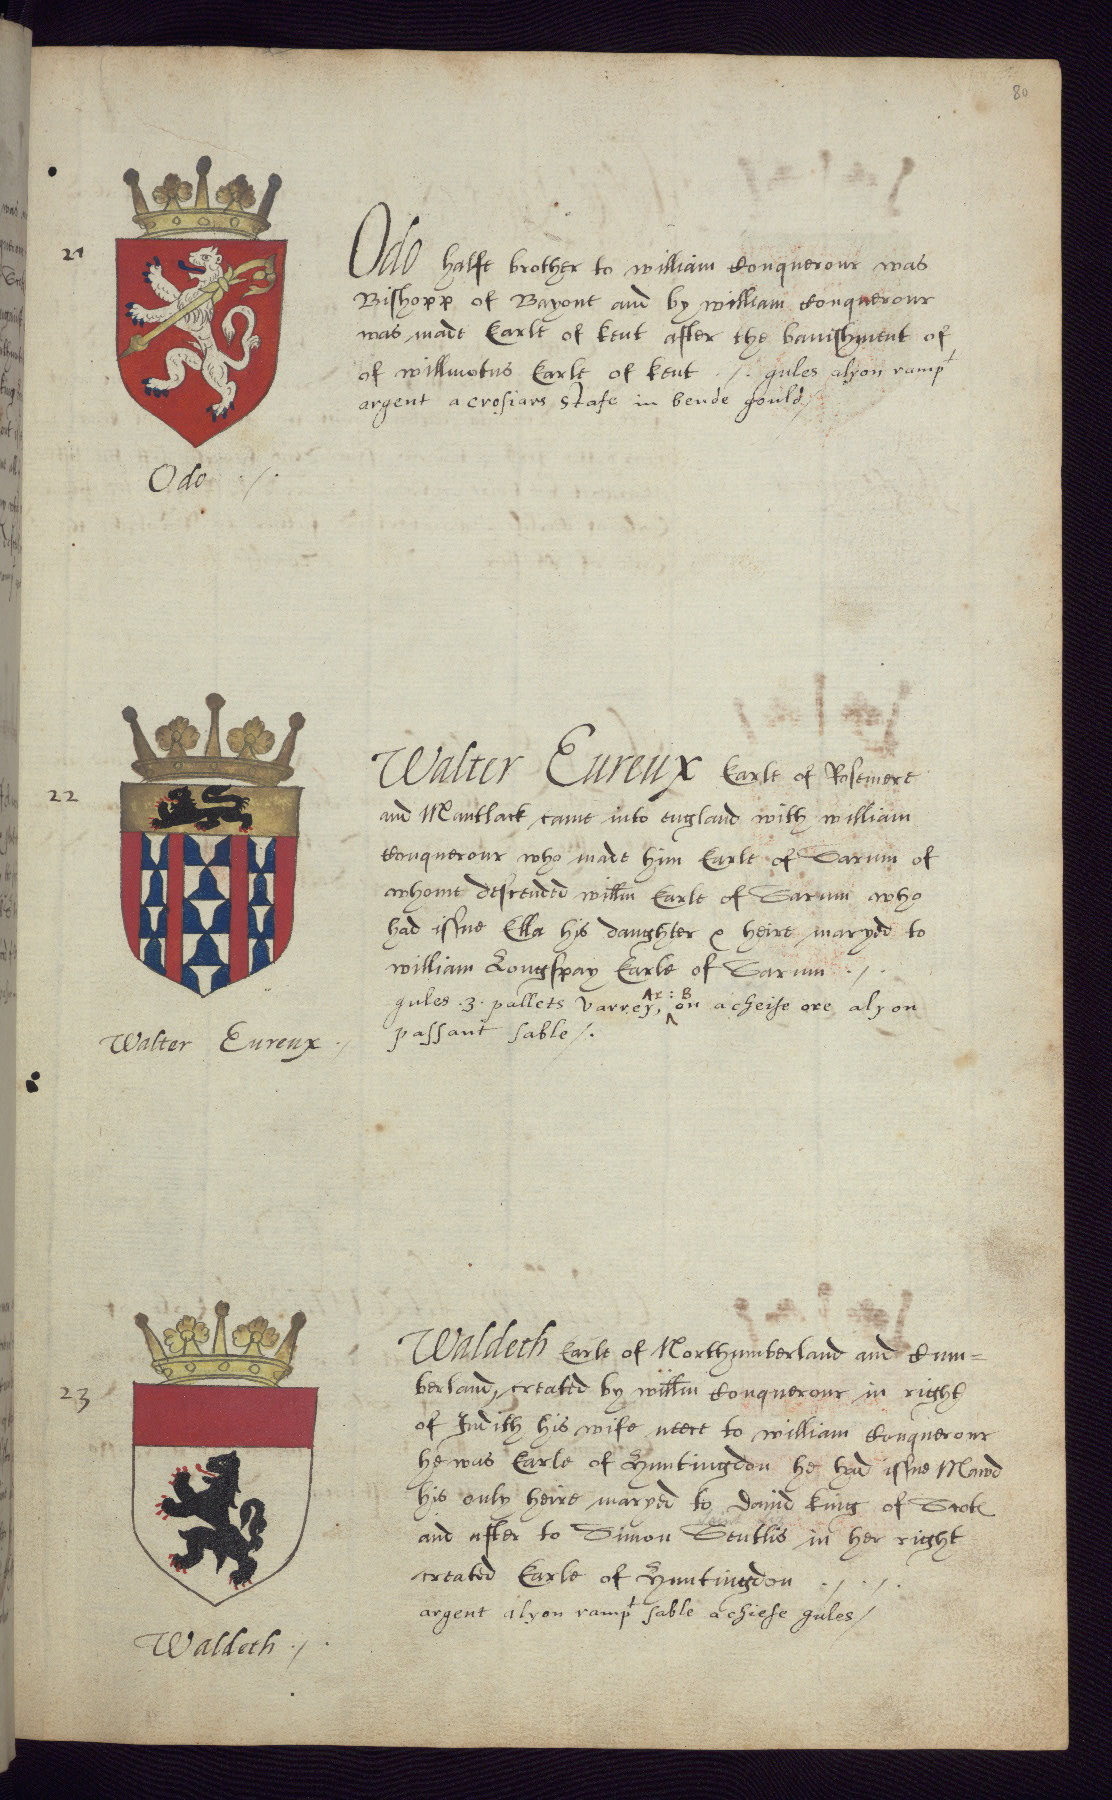 80
21
Odo halfe brother to william Conquerour was
Bishopp of Bayone and by william Conquerour
was made Earle of kent after the banishment of
of willnotus Earle of kent ·/· gules a lyon rampt
argent a crosiars stafe in bende gould
Odo ·/·
22
Walter Eureux Earle of Rosemere
and Mantlack came into england with william
Conquerour who made him Earle of Sarum of
whome descended willm Earle of Sarum who
had issue Ella his daughter & heire maryed to
william Longspay Earle of Sarum ·/·
gules ·3· pallets varrey, Ar: B on a cheife ore a lyon
passant sable /·
Walter Eureux ·/
23
Waldeth Earle of Northumberland and Cum=
berland, created by willm Conquerour in right
of Judith his wife neece to william Conquerour
he was Earle of Huntingdon he had issue Mawd
his only heire maryed to David king of Scots
and after to Simon Sentlis in her right
created Earle of Huntingdon ·/·/·
argent a lyon rampt sable a chiefe gules /
Waldeth ·/·